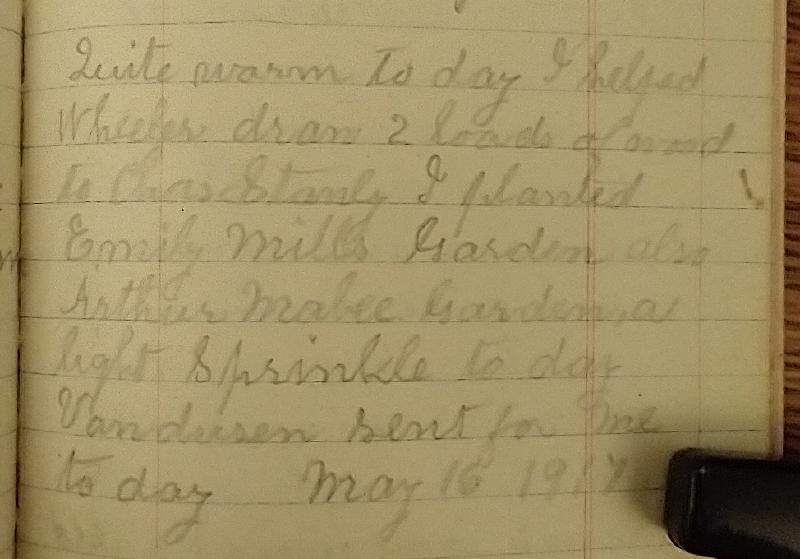 Quite warm to day I helped
Wheeler draw 2 loads of wood
to Chas Stanly I planted
Emily Mills Garden also
Arthur Mabee Garden a
light Sprinkle to day
Vandusen sent for me
to day May 16